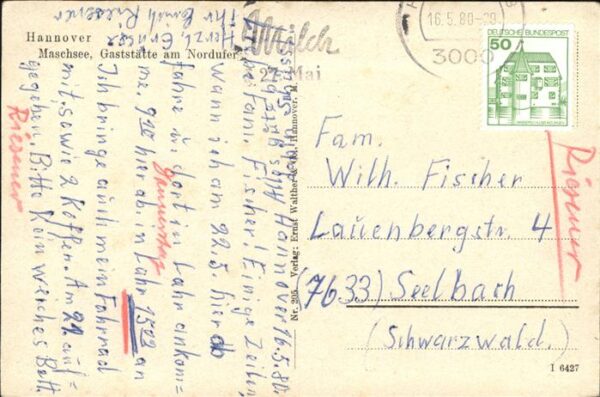 Hannover
Maschsee, Gaststätte am Nordufer
Milch
27. Mai
16.5.80-20
3000
DEUTSCHE BUNDESPOST
50
Hannover 16.5.80.
Fam. Fischer! Einige Zeilen,
wann ich am 22.5. hier ab
fahre u. dort in Lahr ankom=
me. 9 hier ab, in Lahr 15 an
Donnerstag
Ich bringe auch mein Fahrrad
mit, sowie 2 Koffer. Am 21. auf=
gegeben. Bitte kein weiches Bett.
Herzl. Grüsse
Ihr Emil Riesener
Riesener
Nr. 205 Verlag: Ernst Walther Hannover. M.
Fam.
Wilh. Fischer
Lauenbergstr. 4
(7633) Seelbach
(Schwarzwald.)
Riesener
I 6427